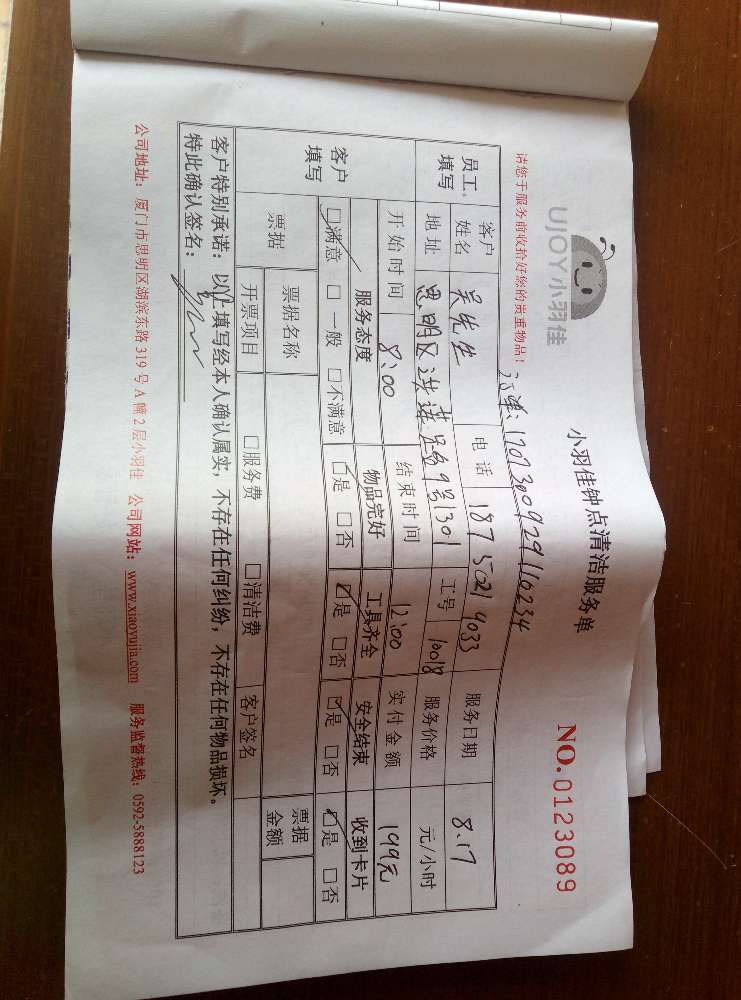 UJOY小羽佳
小羽佳钟点清洁服务单
NO.0123089
请您于服务前收拾好您的贵重物品！
订单：1707300929116234
员工填写
客户姓名 吴先生 电话 187 5021 9033 服务日期 8.17
地址 思明区 路9号1301 工号 10018 服务价格 元/小时
开始时间 8:00 结束时间 12:00 实付金额 199元
客户填写
服务态度 物品完好 工具齐全 安全结束 收到卡片
☑满意 □一般 □不满意 ☑是 □否 ☑是 □否 ☑是 □否 ☑是 □否
票据 票据名称 票据金额
开票项目 □服务费 □清洁费 客户签名
客户特别承诺：以上填写经本人确认属实，不存在任何纠纷，不存在任何物品损坏。
特此确认签名：
公司地址：厦门市思明区湖滨东路319号A幢2层小羽佳 公司网站：www.xiaoyujia.com 服务监督热线：0592-5888123